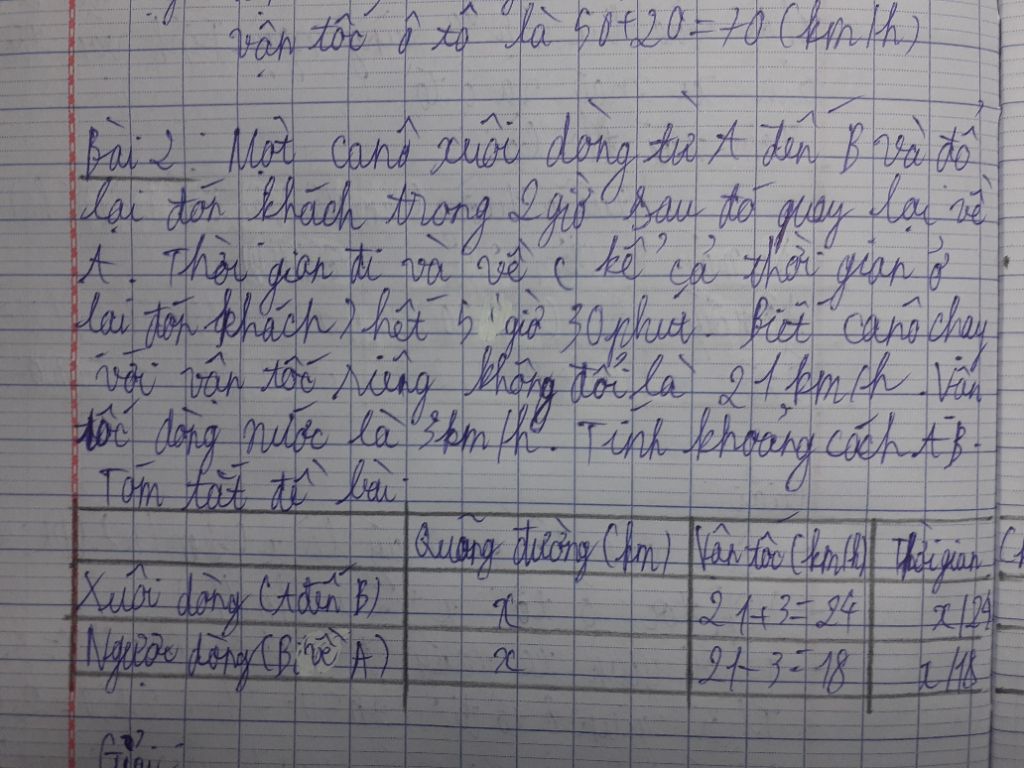 vận tốc ô tô là 50+20=70 (km/h)
Bài 2: Một canô xuôi dòng từ A đến B và đỗ
lại đón khách trong 2 giờ sau đó quay lại về
A. Thời gian đi và về ( kể cả thời gian ở
lại đón khách) hết 5 giờ 30 phút. Biết canô chạy
với vận tốc riêng không đổi là 21 km/h. Vận
tốc dòng nước là 3km/h. Tính khoảng cách AB.
Tóm tắt đề bài:
Quãng đường (km) Vận tốc (km/h) Thời gian (
Xuôi dòng (A đến B) x 21+3=24 x/24
Ngược dòng (B về A) x 21-3=18 x/18
Giải: